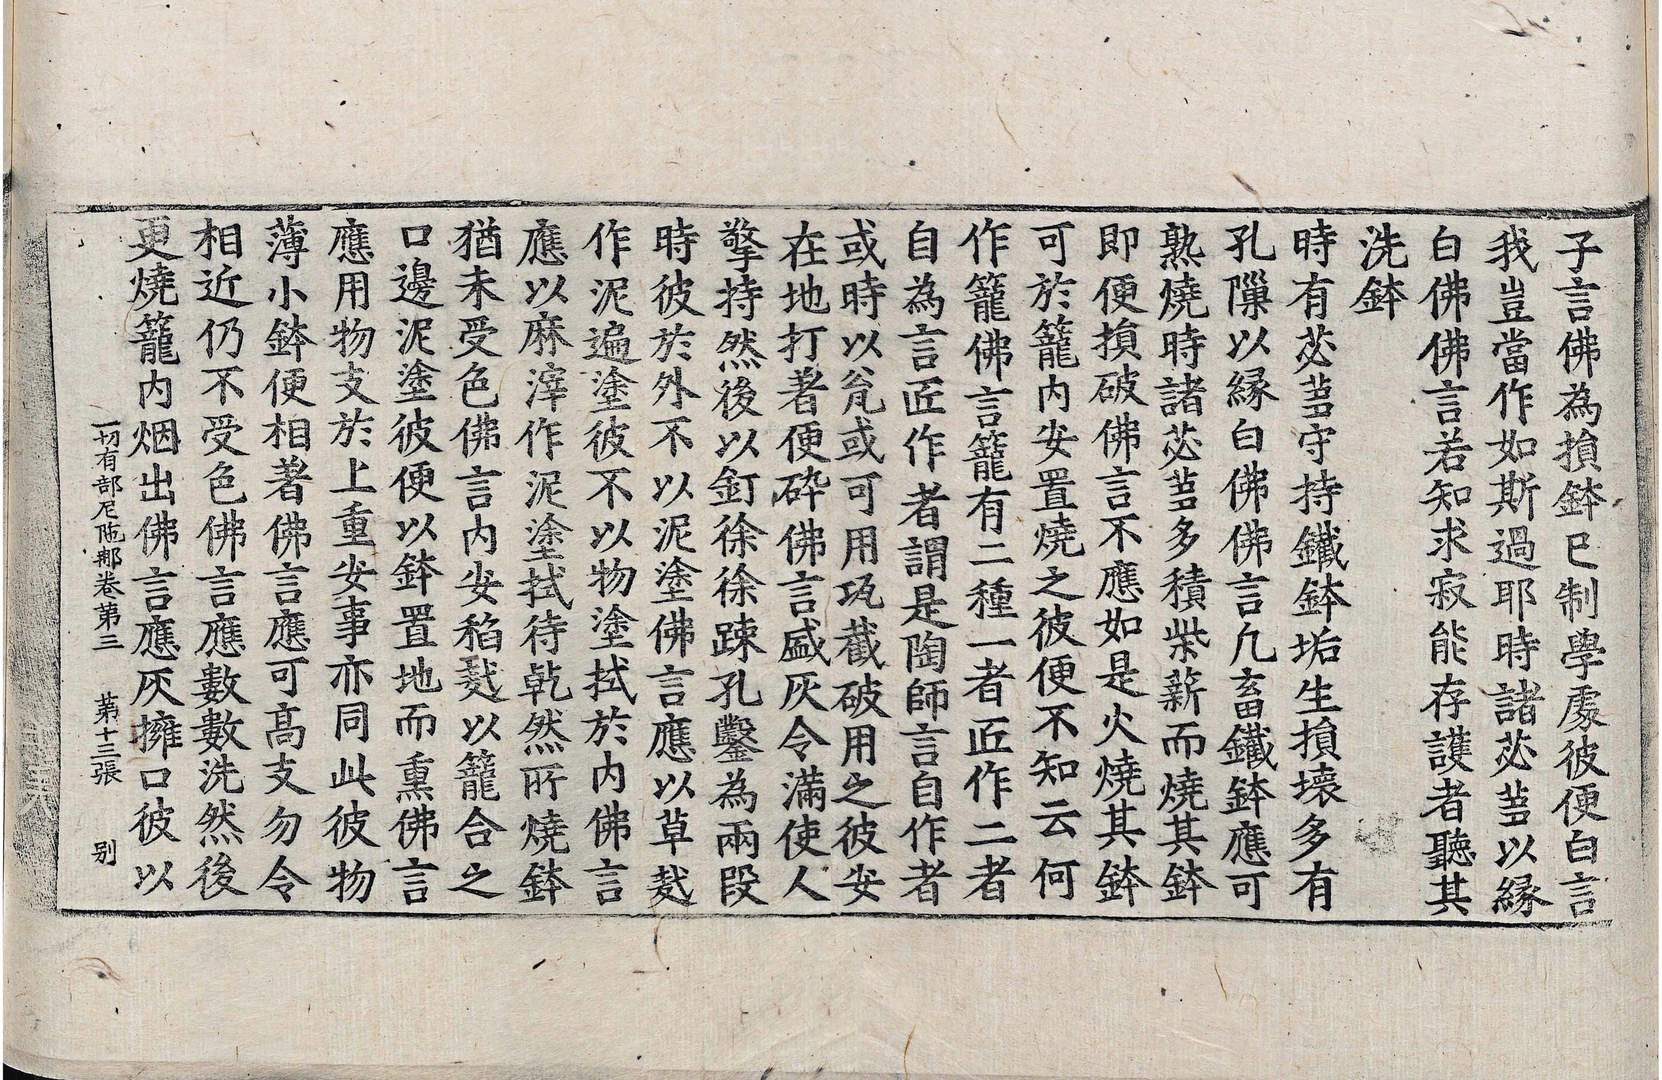 子言佛為損鉢已制學處彼便白言
我豈當作如斯過耶時諸苾蒭以緣
白佛佛言若知求寂能存護者聽其
洗鉢
時有苾蒭守持鐵鉢垢生損壞多有
孔隟以緣白佛佛言凡畜鐵鉢應可
熟燒時諸苾蒭多積柴薪而燒其鉢
即便損破佛言不應如是火燒其鉢
可於籠內安置燒之彼便不知云何
作籠佛言籠有二種一者匠作二者
自為言匠作者謂是陶師言自作者
或時以瓮或可用瓨截破用之彼安
在地打著便碎佛言盛灰令滿使人
擎持然後以釘徐徐踈孔鑿為兩段
時彼於外不以泥塗佛言應以草𪍿
作泥遍塗彼不以物塗拭於內佛言
應以麻滓作泥塗拭待乾然所燒鉢
猶未受色佛言內安稻𪍿以籠合之
口邊泥塗彼便以鉢置地而熏佛言
應用物支於上重安事亦同此彼物
薄小鉢便相著佛言應可高支勿令
相近仍不受色佛言應數數洗然後
更燒籠內烟出佛言應灰擁口彼以
一切有部尼陁那卷第三 第十三張 別